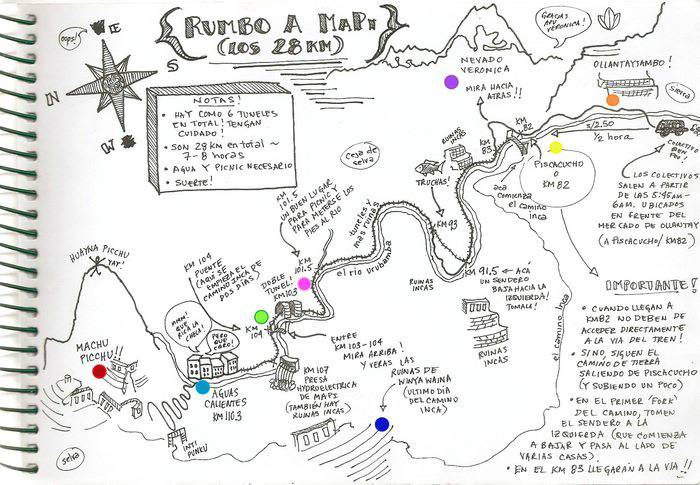 RUMBO A MAPI
(LOS 28 KM)
oops!
E
S
N
W
NOTAS!
• HAY COMO 6 TUNELES
EN TOTAL! TENGAN
CUIDADO!
• SON 28 KM EN TOTAL ~
7-8 HORAS
• AGUA Y PICNIC NECESARIO
• SUERTE!
GRACIAS
APU
VERONICA!
NEVADO
VERONICA
MIRA HACIA
ATRAS!!
OLLANTAYTAMBO!
Sierra
S/2.50
1/2 hora
COLECTIVO
BEN
FUL!
KM
82
KM
83
PISCACUCHO
O
KM 82
aca
comienza
el camino
inca
RUINAS
INCAS
TRUCHAS!
LOS COLECTIVOS
SALEN A PARTIR
DE LAS 5:45AM-
6AM. UBICADOS
EN FRENTE DEL
MERCADO DE OLLANTAY
(A PISCACUCHO/KM82)
Ceja de
selva
KM
101.5
UN BUEN LUGAR
PARA PICNIC Y
PARA METERSE LOS
PIES AL RIO
tuneles y
mas ruinas
KM 93
el rio urubamba
RUINAS
INCAS
KM 91,5 ← ACÁ
UN SENDERO
BAJA HACIA LA
IZQUIERDA!
TOMALE!
RUINAS
INCAS
el camino inca
HUAYNA PICCHU
YAY!
KM 104
PUENTE
(AQUI SE
EMPIEZA EL
CAMINO INCA DE
DOS DIAS)
DOBLE
TUNEL!
KM103
KM
101.5
KM
104
MMM!
QUE
RICA LA
CHELA!
PERO
QUE
CARO!
MACHU
PICCHU!!
AGUAS
CALIENTES
KM 110.3
INTI
PUNKU
selva
KM 107
PRESA
HYDROELECTRICA
DE MAPI
(TAMBIÉN HAY
RUINAS INCAS)
ENTRE
KM 103-104
MIRA ARRIBA!
Y VERAS LAS
RUINAS DE
WINYA WAINA
(ULTIMO DIA
DEL CAMINO
INCA)
IMPORTANTE!
• CUANDO LLEGAN A
KM82 NO DEBEN DE
ACCEDER DIRECTAMENTE
A LA VIA DEL TREN!
• SINO, SIGUEN EL
CAMINO DE TIERRA
SALIENDO DE PISCACUCHO
(Y SUBIENDO UN POCO)
• EN EL PRIMER 'FORK'
DEL CAMINO, TOMEN
EL SENDERO A LA
IZQUIERDA (QUE COMIENZA
A BAJAR Y PASA AL LADO DE
VARIAS CASAS).
• EN EL KM 83 LLEGARÁN A LA VIA!!